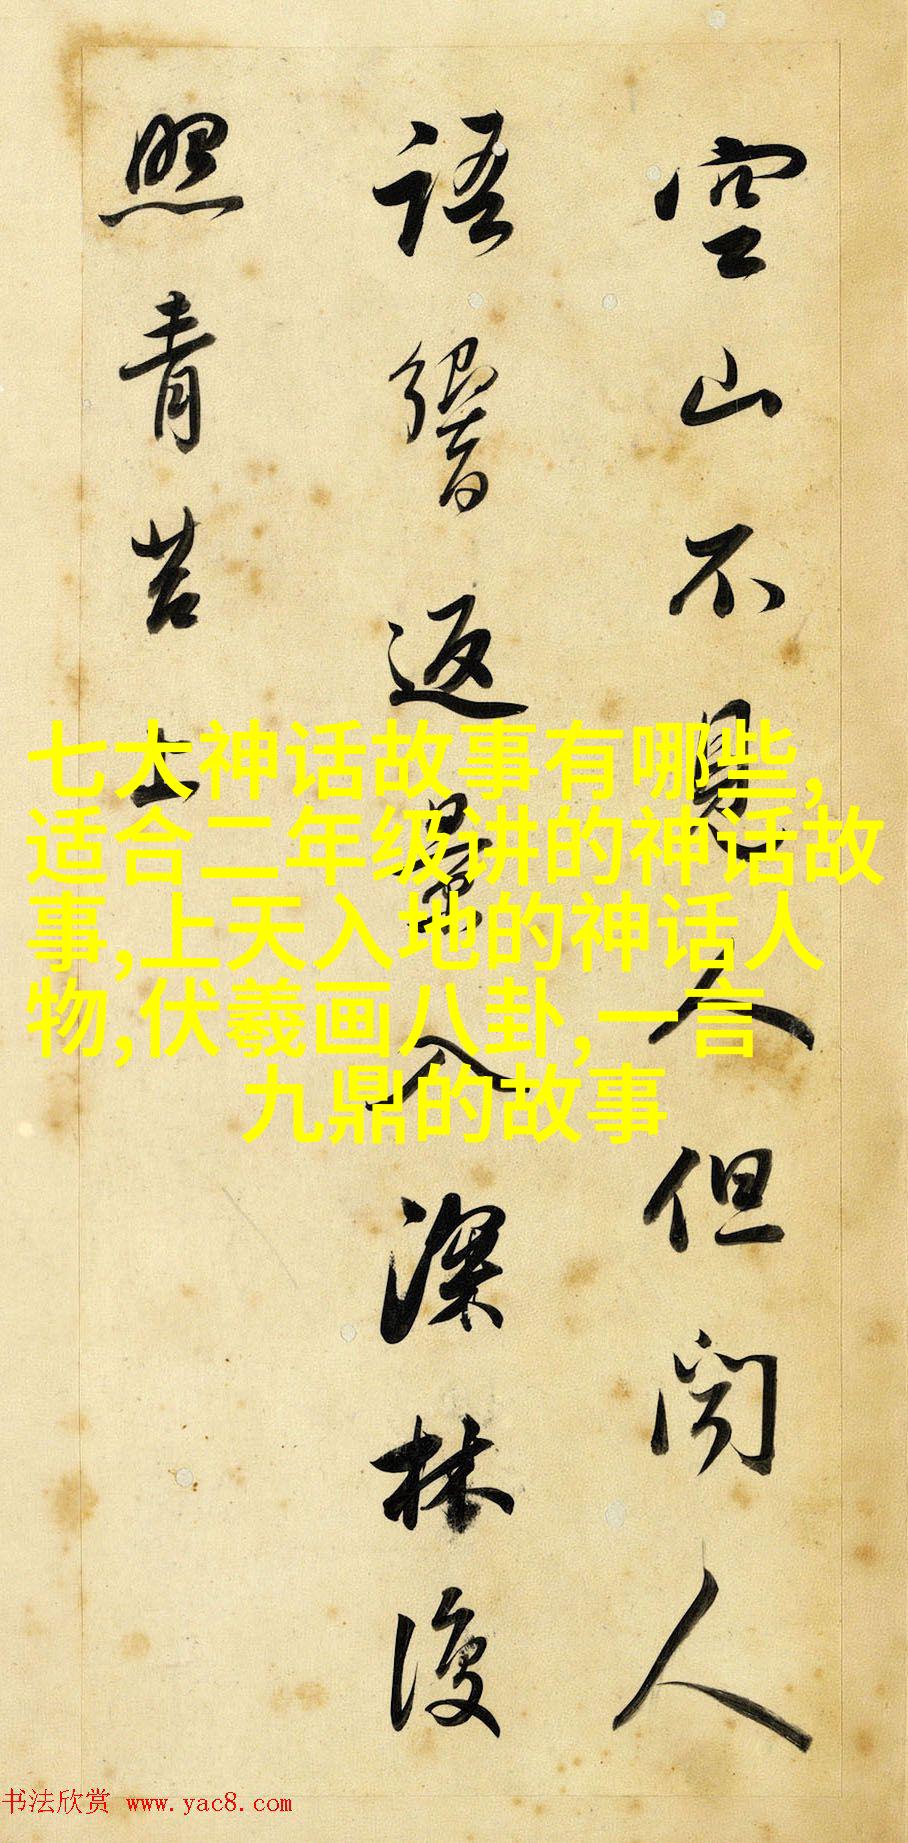 空山不見人但聞人
語響返景入深林復
照青苔上
七大神话故事有哪些,
适合二年级讲的神话故
事,上天入地的神话人
物,伏羲画八卦,一言
九鼎的故事
书法欣赏 www.yac8.com